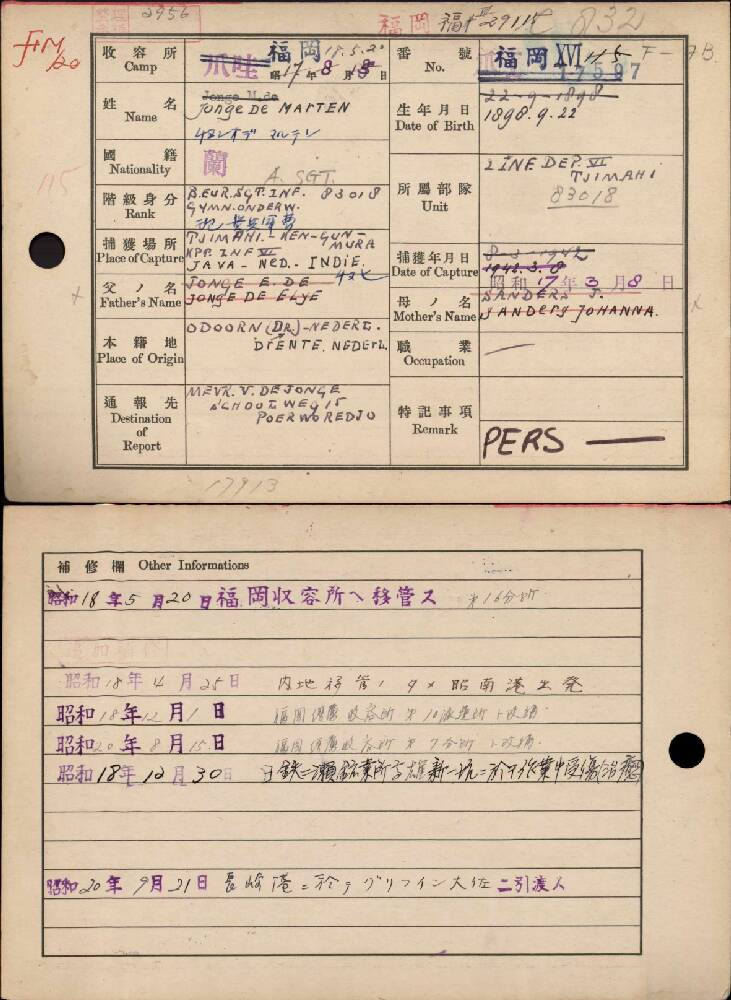 2956
福岡 福 29115
832
FM/20
115
收容所 Camp
爪哇 福岡 18.5.20
昭17年8月 日
番號 No.
福岡 XVI
姓名 Name
Jonge M.de
Jonge De MARTEN
生年月日 Date of Birth
22-9-1898
1898.9.22
國籍 Nationality
蘭
A. SGT.
所屬部隊 Unit
LINE DEP. VI
TJIMAHI
83018
階級身分 Rank
B.EUR.SGT.INF. 83018
GYMN.ONDERW.
捕獲場所 Place of Capture
TJIMAHI. - KEN-GUN-MURA
KPP. INF VI
JAVA - NED.- INDIE.
捕獲年月日 Date of Capture
8-3-1942
1942.3.8
昭和17年3月8日
父ノ名 Father's Name
JONGE E. DE
JONGE DE ELYE
母ノ名 Mother's Name
SANDERS J.
SANDERS JOHANNA.
本籍地 Place of Origin
ODOORN (DR.)-NEDERL.
DRENTE, NEDERL.
職業 Occupation
通報先 Destination of Report
MEVR. V. DE JONGE
SCHOOLWEG 15
POERWOREDJO
特記事項 Remark
PERS —
17913
補修欄 Other Informations
昭和18年5月20日福岡収容所ヘ移管ス 第16分所
昭和18年4月25日 内地移管ノタメ昭南港出発
昭和18年12月1日 福岡俘虜收容所第10派遣所ト改稱
昭和20年8月15日 福岡俘虜收容所第7分所ト改稱
昭和18年12月30日 日鉄二瀬鉱業所高雄新二坑ニ於テ作業中受傷
昭和20年9月21日 長崎港ニ於テグリフイン大佐ニ引渡ス